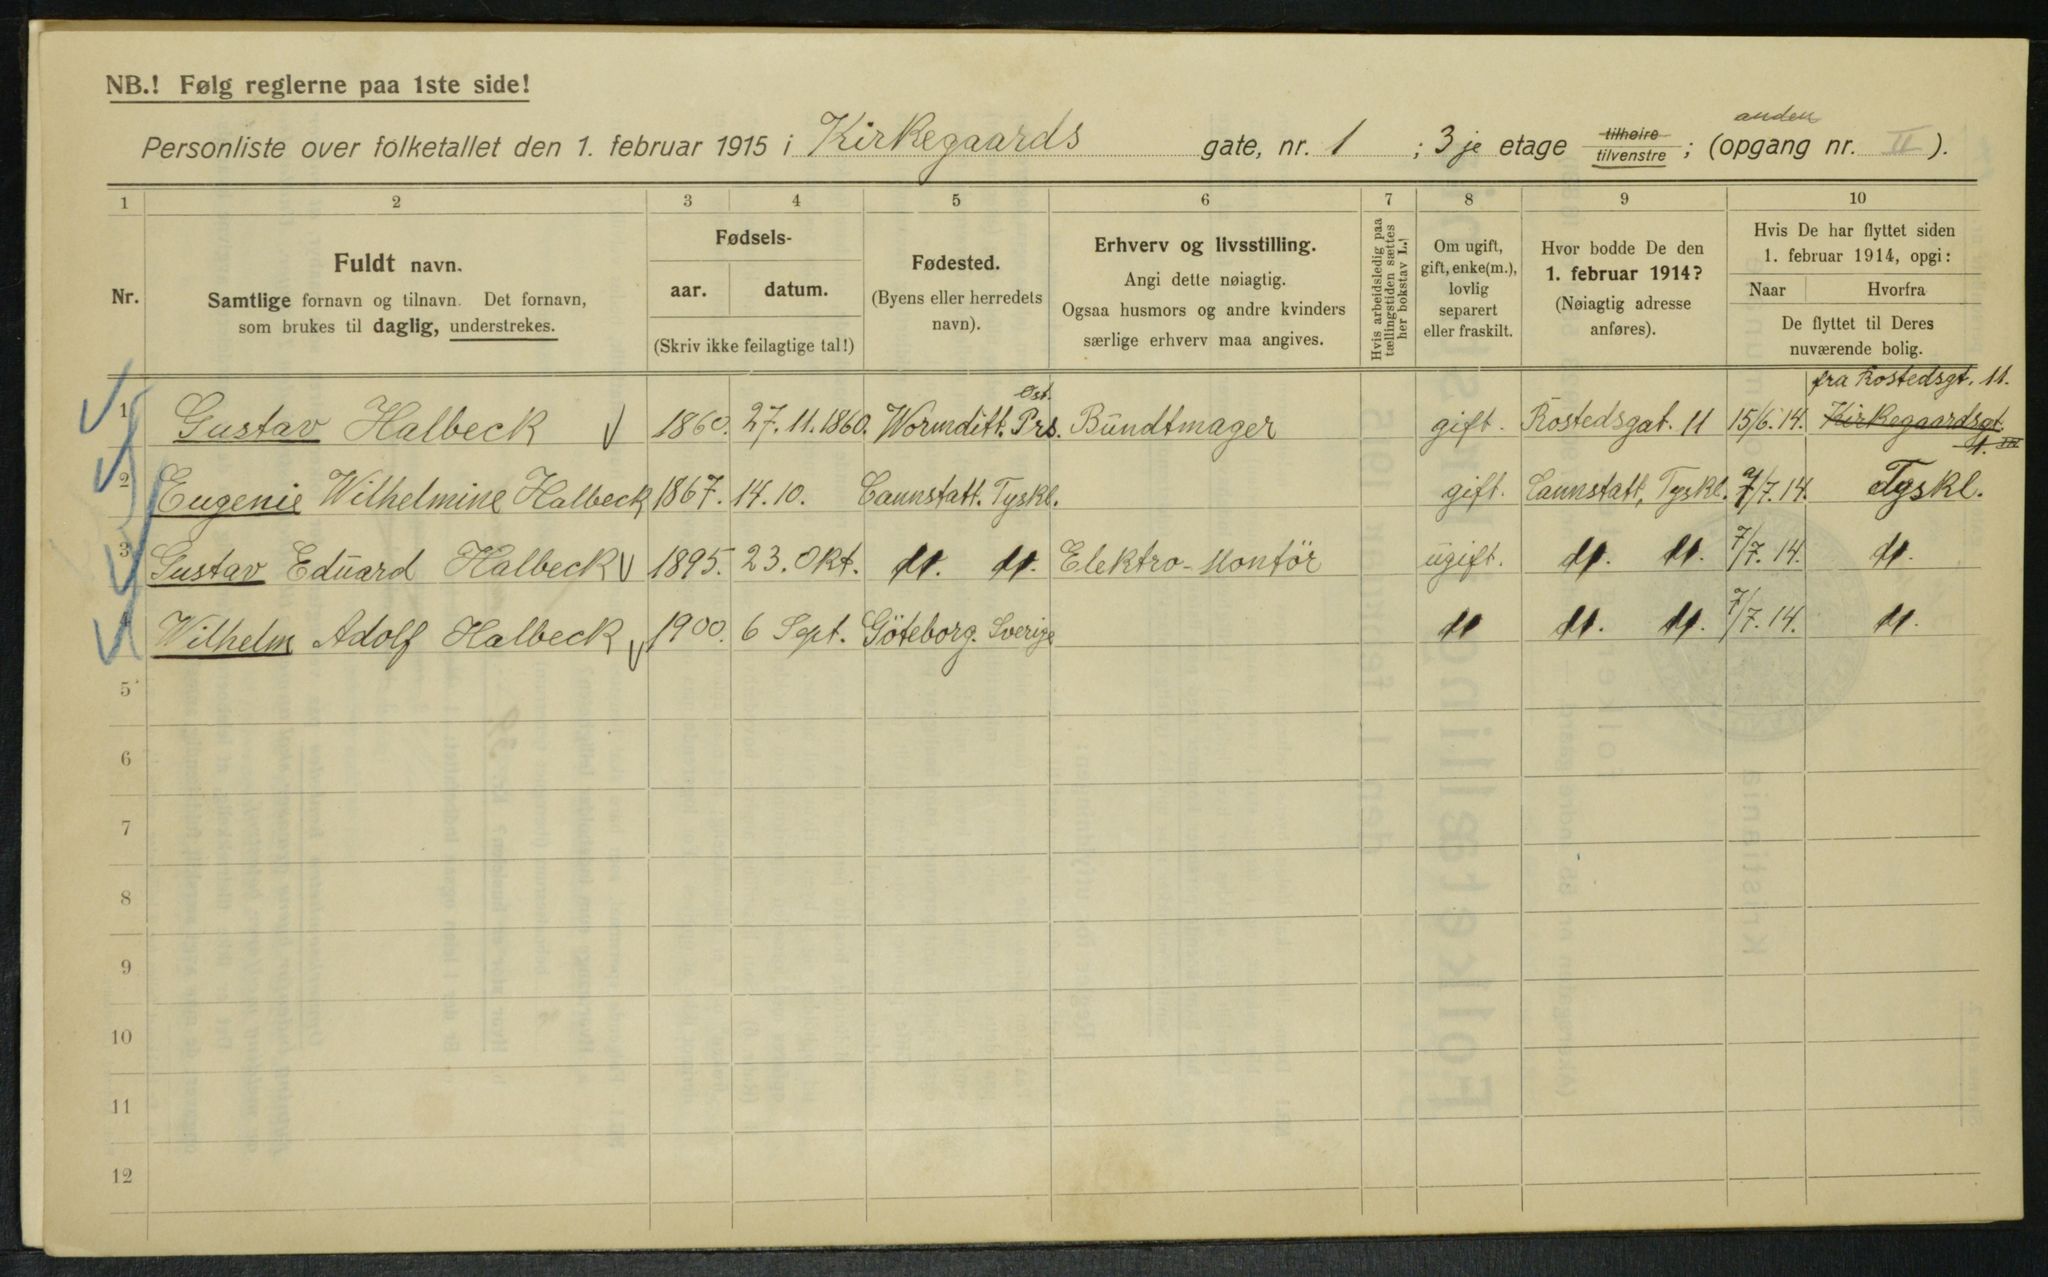 NB.! Følg reglerne paa 1ste side!
anden
Personliste over folketallet den 1. februar 1915 i Kirkegaards gate, nr. 1 ; 3 je etage tilhøire tilvenstre ; (opgang nr. II ).
1 2 3 4 5 6 7 8 9 10
Nr.
Fuldt navn.
Samtlige fornavn og tilnavn. Det fornavn,
som brukes til daglig, understrekes.
Fødsels-
aar. datum.
(Skriv ikke feilagtige tal!)
Fødested.
(Byens eller herredets
navn).
Erhverv og livsstilling.
Angi dette nøiagtig.
Ogsaa husmors og andre kvinders
særlige erhverv maa angives.
Hvis arbeidsledig paa
tællingstiden sættes
her bokstav L.!
Om ugift,
gift, enke(m.),
lovlig
separert
eller fraskilt.
Hvor bodde De den
1. februar 1914?
(Nøiagtig adresse
anføres).
Hvis De har flyttet siden
1. februar 1914, opgi:
Naar Hvorfra
De flyttet til Deres
nuværende bolig.
fra Rostedsgt. 11.
Ost.
1 Gustav Halbeck 1860. 27.11.1860. Wormditt. Prs. Bündtmager gift. Rostedsgat. 11 15/6.14. Kirkegaardsgt.
1. III
2 Eugenie Wilhelmine Halbeck 1867. 14.10. Cannstatt. Tyskl. gift. Cannstatt, Tyskl. 7/7.14. Tyskl.
3 Gustav Edüard Halbeck 1895. 23. Okt. 〃. 〃. Elektro-Montör ügift. 〃. 〃. 7/7.14. 〃.
4 Wilhelm Adolf Halbeck 1900. 6 Sept. Göteborg. Sverige 〃 〃. 〃. 7/7.14. 〃.
5
6
7
8
9
10
11
12